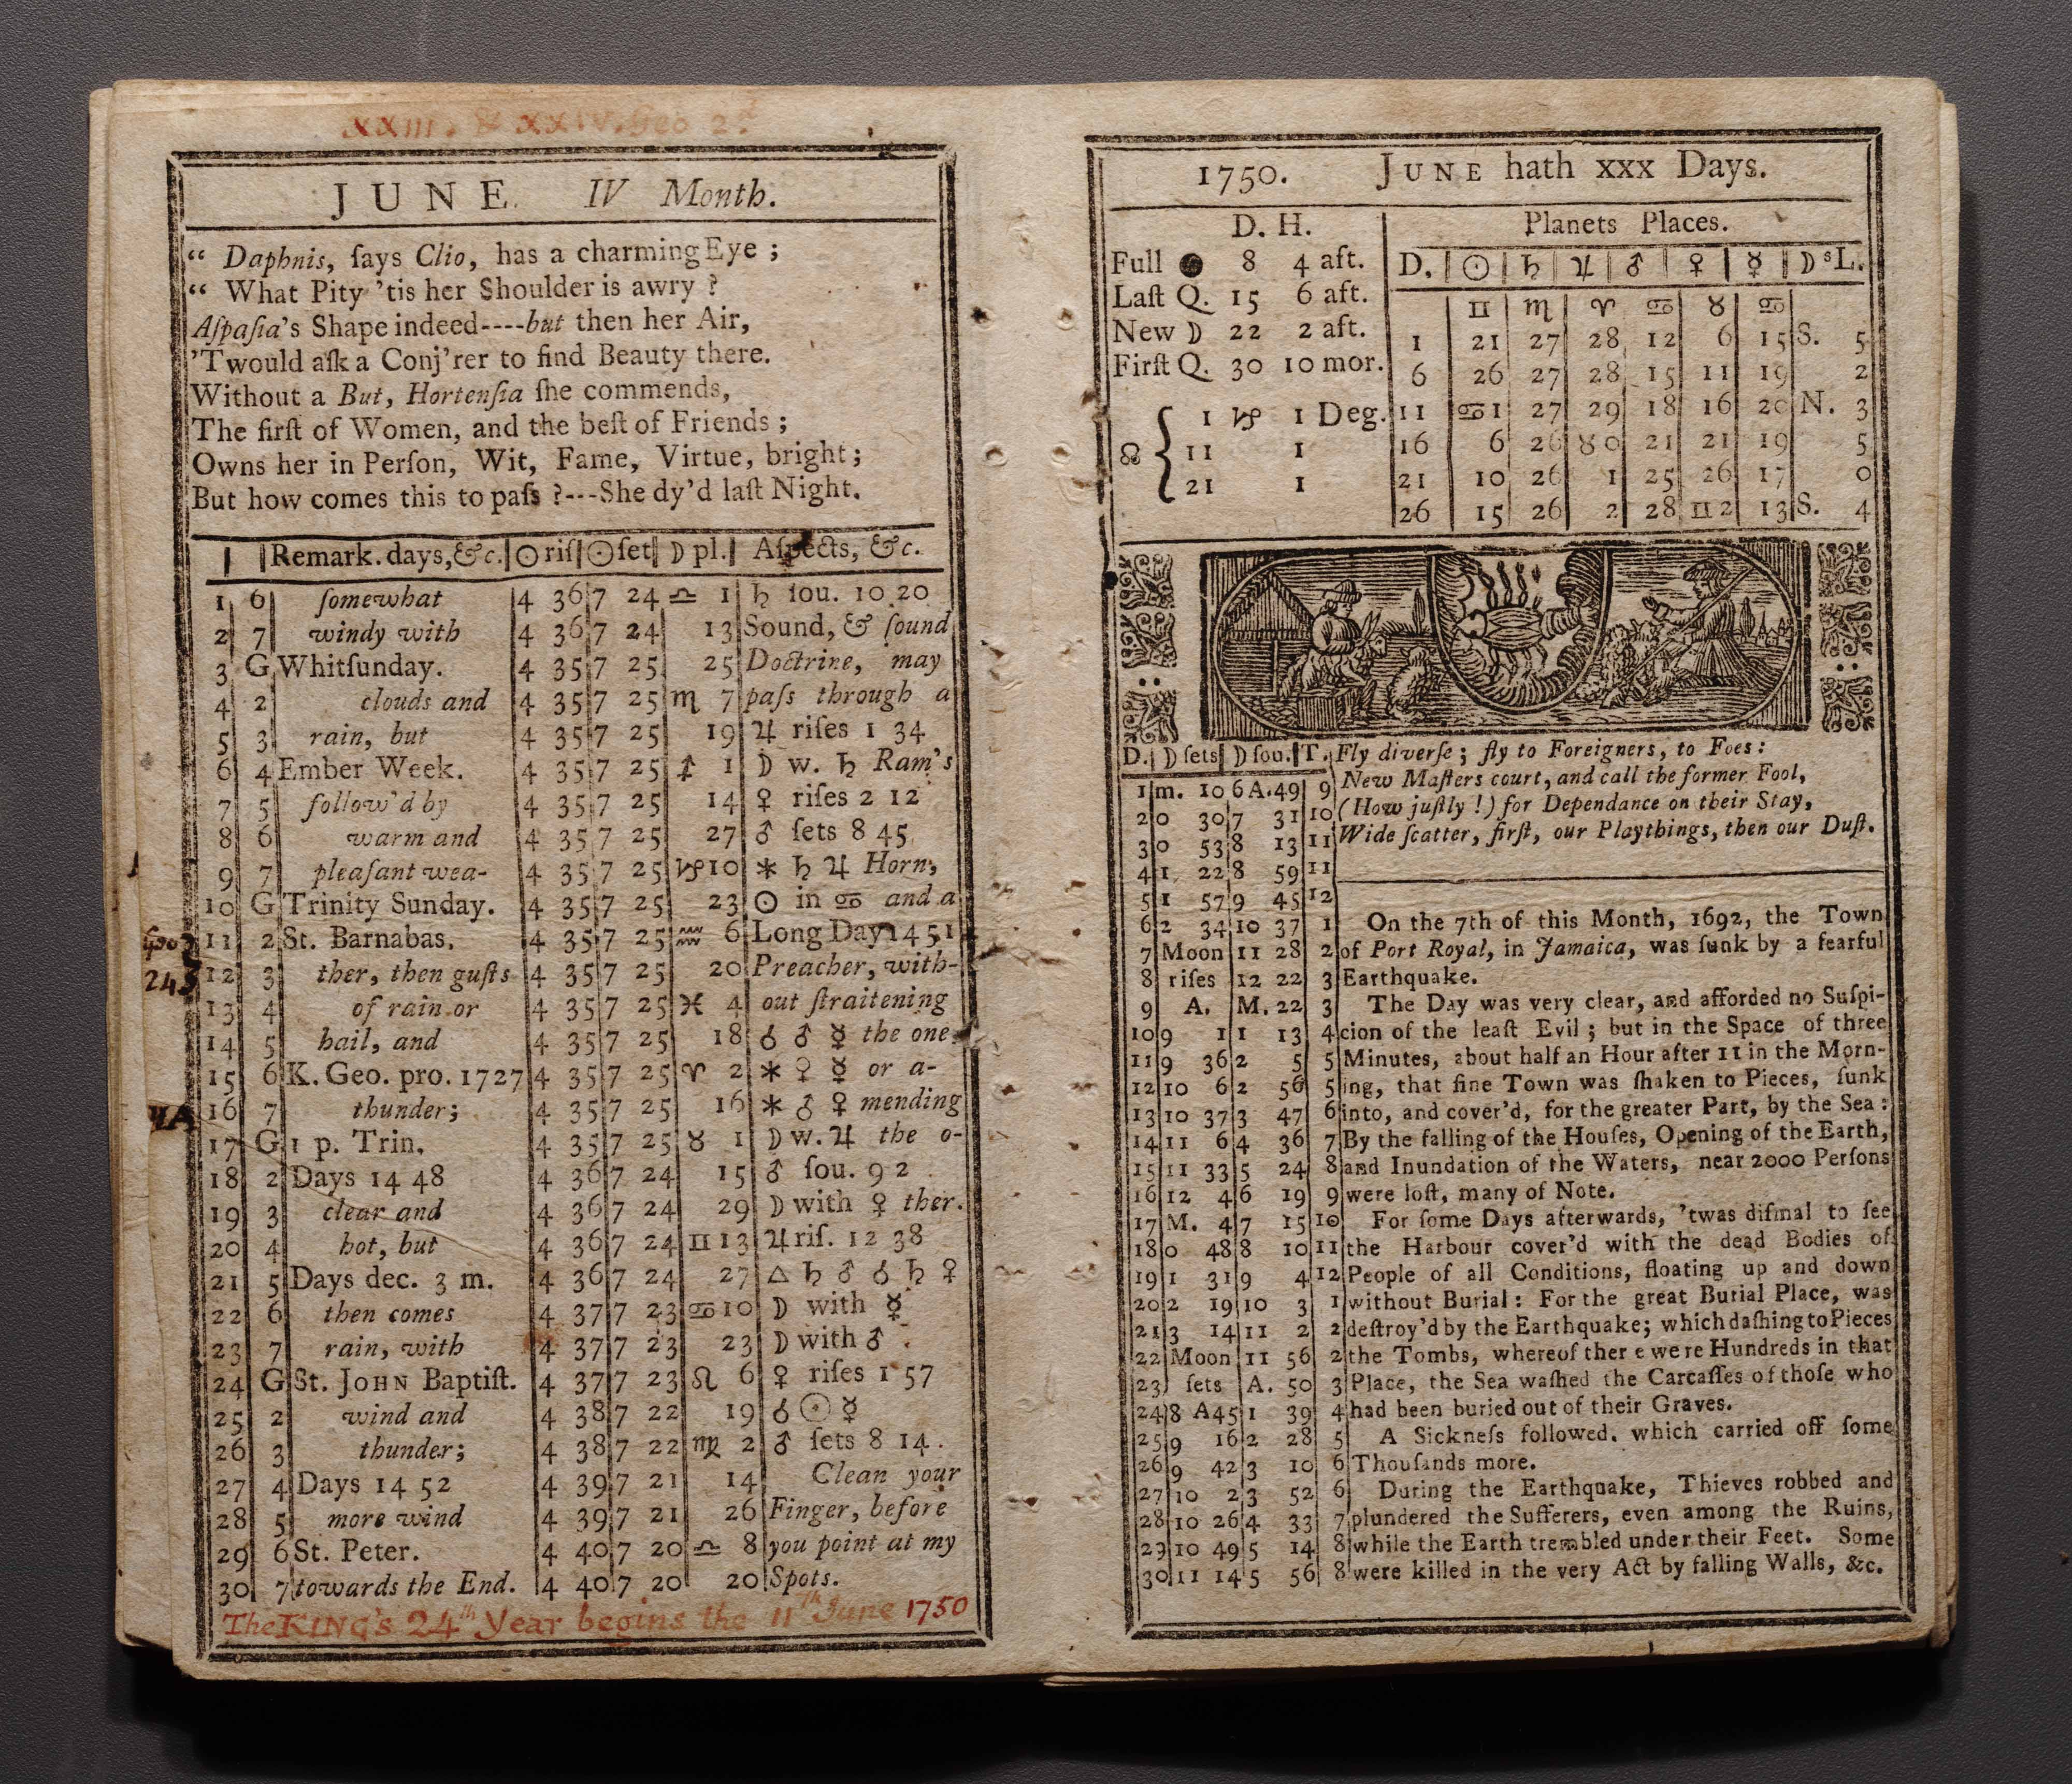 XXIII. & XXIV. Geo 2.d
JUNE. IV Month.
“ Daphnis, ſays Clio, has a charming Eye ;
“ What Pity ’tis her Shoulder is awry ?
Aſpaſia’s Shape indeed----but then her Air,
’Twould aſk a Conj’rer to find Beauty there.
Without a But, Hortenſia ſhe commends,
The firſt of Women, and the beſt of Friends ;
Owns her in Perſon, Wit, Fame, Virtue, bright;
But how comes this to paſs ?---She dy’d laſt Night.
Remark. days,&c. ☉ riſ ☉ ſet ☽ pl. Aſpects, &c.
1 6 ſomewhat 4 36 7 24 ♎ 1 ♄ ſou. 10 20
2 7 windy with 4 36 7 24 13 Sound, & ſound
3 G Whitſunday. 4 35 7 25 25 Doctrine, may
4 2 clouds and 4 35 7 25 ♏ 7 paſs through a
5 3 rain, but 4 35 7 25 19 ♃ riſes 1 34
6 4 Ember Week. 4 35 7 25 ♐ 1 ☽ w. ♄ Ram’s
7 5 follow’d by 4 35 7 25 14 ♀ riſes 2 12
8 6 warm and 4 35 7 25 27 ♂ ſets 8 45
9 7 pleaſant wea- 4 35 7 25 ♑ 10 ⚹ ♄ ♃ Horn,
10 G Trinity Sunday. 4 35 7 25 23 ☉ in ♋ and a
11 2 St. Barnabas. 4 35 7 25 ♒ 6 Long Day 14 51
24 12 3 ther, then guſts 4 35 7 25 20 Preacher, with-
13 4 of rain or 4 35 7 25 ♓ 4 out ſtraitening
14 5 hail, and 4 35 7 25 18 ☌ ♂ ☿ the one
15 6 K. Geo. pro. 1727 4 35 7 25 ♈ 2 ⚹ ♀ ☿ or a-
16 7 thunder; 4 35 7 25 16 ⚹ ♂ ♀ mending
17 G 1 p. Trin. 4 35 7 25 ♉ 1 ☽ w. ♃ the o-
18 2 Days 14 48 4 36 7 24 15 ♂ ſou. 9 2
19 3 clear and 4 36 7 24 29 ☽ with ♀ ther.
20 4 hot, but 4 36 7 24 ♊ 13 ♃ riſ. 12 38
21 5 Days dec. 3 m. 4 36 7 24 27 △ ♄ ♂ ☌ ♄ ♀
22 6 then comes 4 37 7 23 ♋ 10 ☽ with ☿
23 7 rain, with 4 37 7 23 23 ☽ with ♂
24 G St. JOHN Baptiſt. 4 37 7 23 ♌ 6 ♀ riſes 1 57
25 2 wind and 4 38 7 22 19 ☌ ☉ ☿
26 3 thunder; 4 38 7 22 ♍ 2 ♂ ſets 8 14.
27 4 Days 14 52 4 39 7 21 14 Clean your
28 5 more wind 4 39 7 21 26 Finger, before
29 6 St. Peter. 4 40 7 20 ♎ 8 you point at my
30 7 towards the End. 4 40 7 20 20 Spots.
The KING’s 24th Year begins the 11th June 1750
1750. JUNE hath xxx Days.
D. H.
Full ● 8 4 aft.
Laſt Q. 15 6 aft.
New ☽ 22 2 aft.
Firſt Q. 30 10 mor.
☊ { 1 ♑ 1 Deg.
11 1
21 1
Planets Places.
D. ☉ ♄ ♃ ♂ ♀ ☿ ☽sL.
♊ ♏ ♈ ♋ ♉ ♋
1 21 27 28 12 6 15 S. 5
6 26 27 28 15 11 19 2
11 ♋1 27 29 18 16 20 N. 3
16 6 26 ♉0 21 21 19 5
21 10 26 1 25 26 17 0
26 15 26 2 28 ♊2 13 S. 4
D. ☽ ſets ☽ ſou. T.
1 m. 10 6 A. 49 9
2 0 30 7 31 10
3 0 53 8 13 11
4 1 22 8 59 11
5 1 57 9 45 12
6 2 34 10 37 1
7 Moon 11 28 2
8 riſes 12 22 3
9 A. M. 22 3
10 9 1 1 13 4
11 9 36 2 5 5
12 10 6 2 56 5
13 10 37 3 47 6
14 11 6 4 36 7
15 11 33 5 24 8
16 12 4 6 19 9
17 M. 4 7 15 10
18 0 48 8 10 11
19 1 31 9 4 12
20 2 19 10 3 1
21 3 14 11 2 2
22 Moon 11 56 2
23 ſets A. 50 3
24 8 A45 1 39 4
25 9 16 2 28 5
26 9 42 3 10 6
27 10 2 3 52 6
28 10 26 4 33 7
29 10 49 5 14 8
30 11 14 5 56 8
Fly diverſe ; fly to Foreigners, to Foes :
New Maſters court, and call the former Fool,
(How juſtly !) for Dependance on their Stay,
Wide ſcatter, firſt, our Playthings, then our Duſt.
On the 7th of this Month, 1692, the Town
of Port Royal, in Jamaica, was ſunk by a fearful
Earthquake.
The Day was very clear, and afforded no Suſpi-
cion of the leaſt Evil ; but in the Space of three
Minutes, about half an Hour after 11 in the Morn-
ing, that fine Town was ſhaken to Pieces, ſunk
into, and cover’d, for the greater Part, by the Sea :
By the falling of the Houſes, Opening of the Earth,
and Inundation of the Waters, near 2000 Perſons
were loſt, many of Note.
For ſome Days afterwards, ’twas diſmal to ſee
the Harbour cover’d with the dead Bodies of
People of all Conditions, floating up and down
without Burial : For the great Burial Place, was
deſtroy’d by the Earthquake; which daſhing to Pieces
the Tombs, whereof ther e were Hundreds in that
Place, the Sea waſhed the Carcaſſes of thoſe who
had been buried out of their Graves.
A Sickneſs followed, which carried off ſome
Thouſands more.
During the Earthquake, Thieves robbed and
plundered the Sufferers, even among the Ruins,
while the Earth trembled under their Feet. Some
were killed in the very Act by falling Walls, &c.